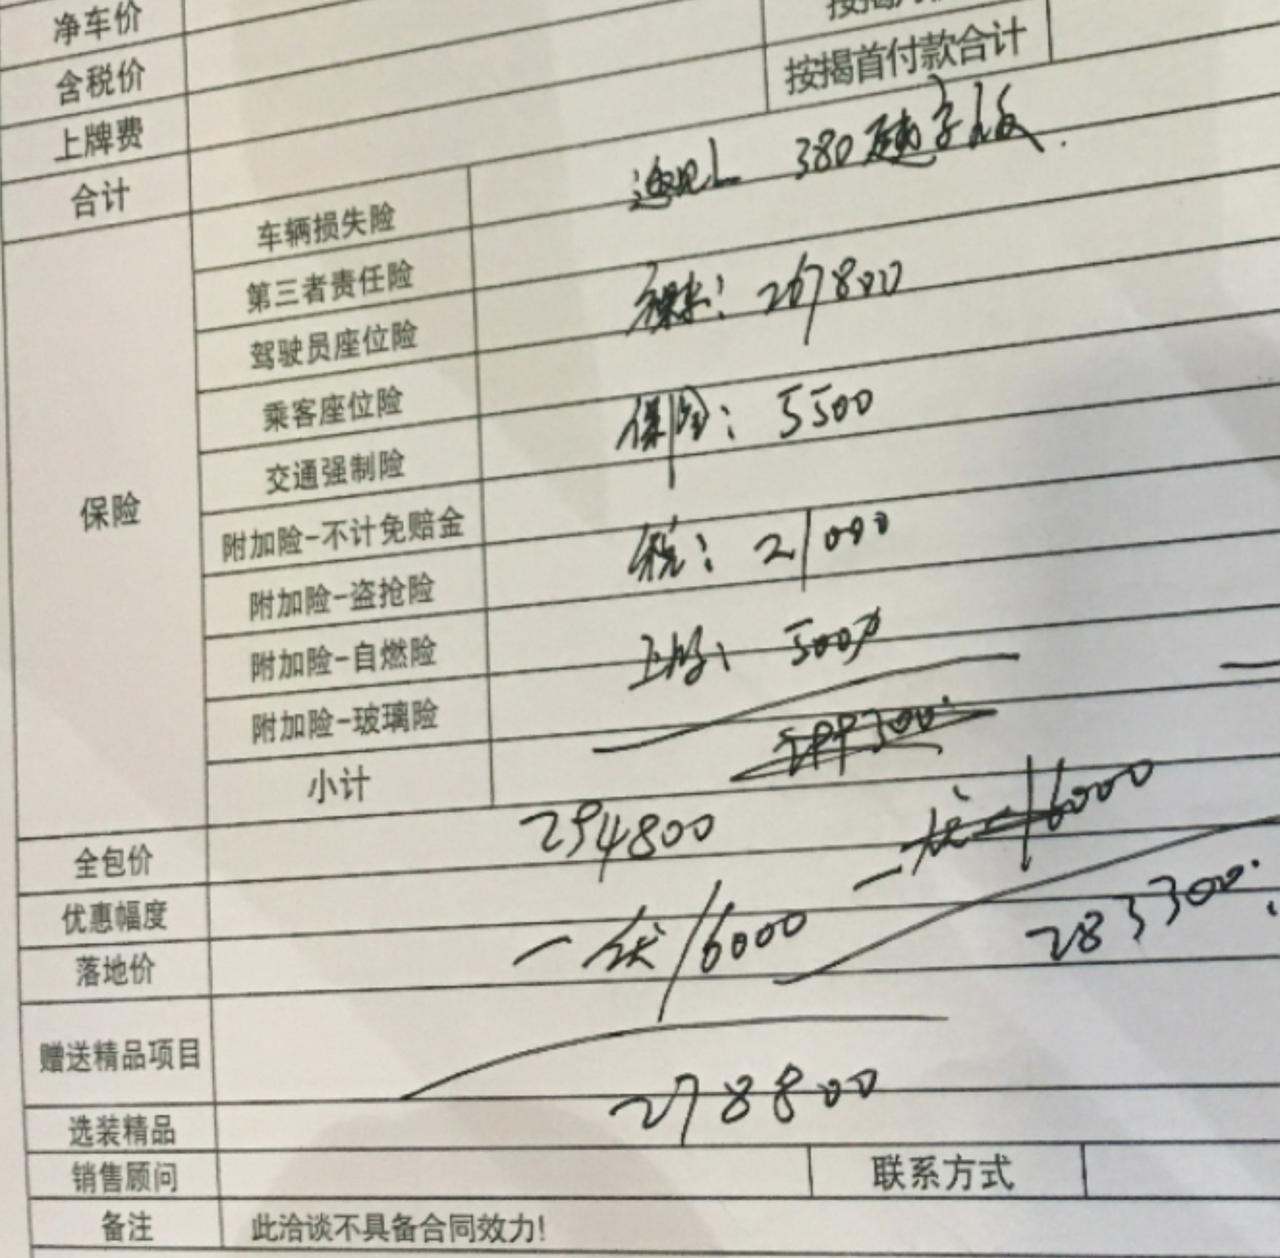 净车价
含税价
按揭首付款合计
上牌费
合计
保险
车辆损失险
第三者责任险
驾驶员座位险
乘客座位险
交通强制险
附加险-不计免赔金
附加险-盗抢险
附加险-自燃险
附加险-玻璃险
小计
途观L 380
裸车: 267800
保险: 5500
税: 21000
上牌: 500
294800
16000
全包价
优惠幅度
16000
283300
落地价
赠送精品项目
278800
选装精品
销售顾问 联系方式
备注 此洽谈不具备合同效力!